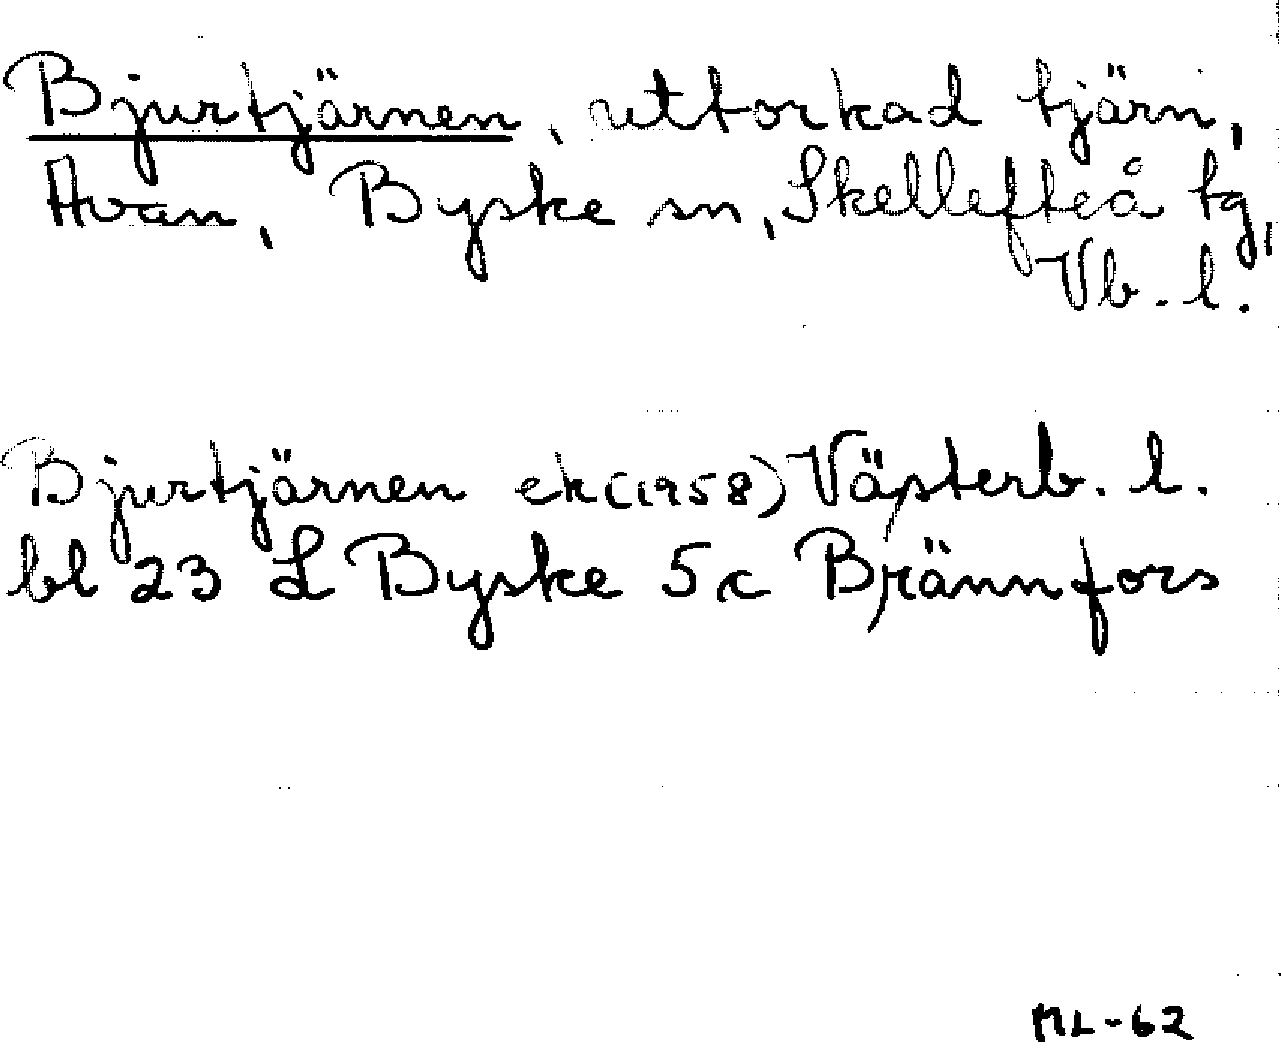 Bjurtjärnen, uttorkad tjärn,
Avan, Byske sn, Skellefteå tg,
Vb. l.
Bjurtjärnen ek (1958) Västerb. l.
bl 23 L Byske 5c Brännfors
ML-62